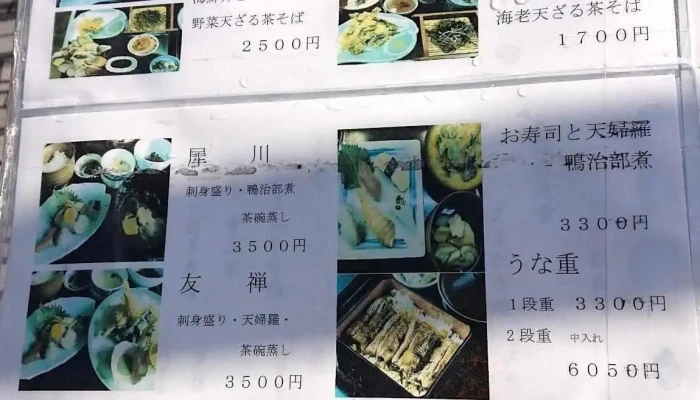 野菜天ざる茶そば
2500円
海老天ざる茶そば
1700円
犀川
刺身盛り・鴨治部煮
茶碗蒸し
3500円
友禅
刺身盛り・天婦羅・
茶碗蒸し
3500円
お寿司と天婦羅
鴨治部煮
3300円
うな重
1段重 3300円
2段重 中入れ
6050円